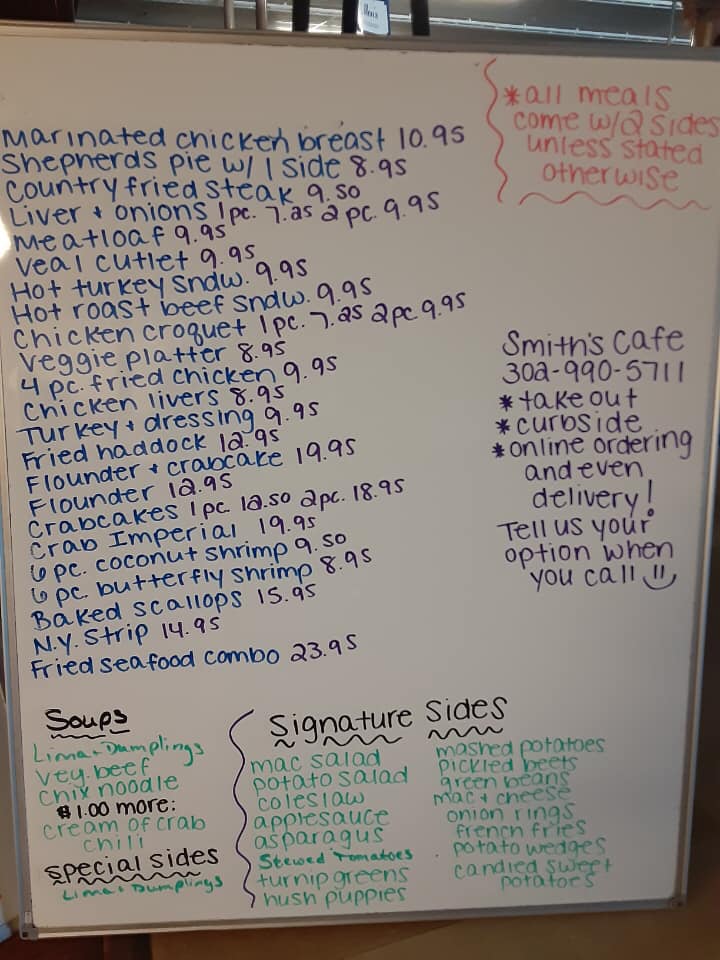 Marinated chicken breast 10.95
Shepherds pie w/ 1 side 8.95
Country fried steak 9.50
Liver + onions 1 pc. 7.25 2 pc. 9.95
Meatloaf 9.95
Veal cutlet 9.95
Hot turkey sndw. 9.95
Hot roast beef sndw. 9.95
Chicken croquet 1 pc. 7.25 2 pc 9.95
Veggie platter 8.95
4 pc. fried chicken 9.95
Chicken livers 8.95
Turkey + dressing 9.95
Fried haddock 12.95
Flounder + crabcake 19.95
Flounder 12.95
Crabcakes 1 pc 12.50 2 pc. 18.95
Crab Imperial 19.95
6 pc. coconut shrimp 9.50
6 pc butterfly shrimp 8.95
Baked scallops 15.95
N.Y. Strip 14.95
Fried seafood combo 23.95
*all meals
come w/2 sides
unless stated
otherwise
Smith's Cafe
302-990-5711
*take out
*curbside
*online ordering
and even
delivery!
Tell us your
option when
you call
Soups
Lima + Dumplings
Veg. beef
Chix noodle
$1.00 more:
cream of crab
chili
Special sides
Lima + Dumplings
Signature Sides
mac salad
potato salad
coleslaw
applesauce
asparagus
Stewed Tomatoes
turnip greens
hush puppies
mashed potatoes
pickled beets
green beans
mac + cheese
onion rings
french fries
potato wedges
candied sweet
potatoes